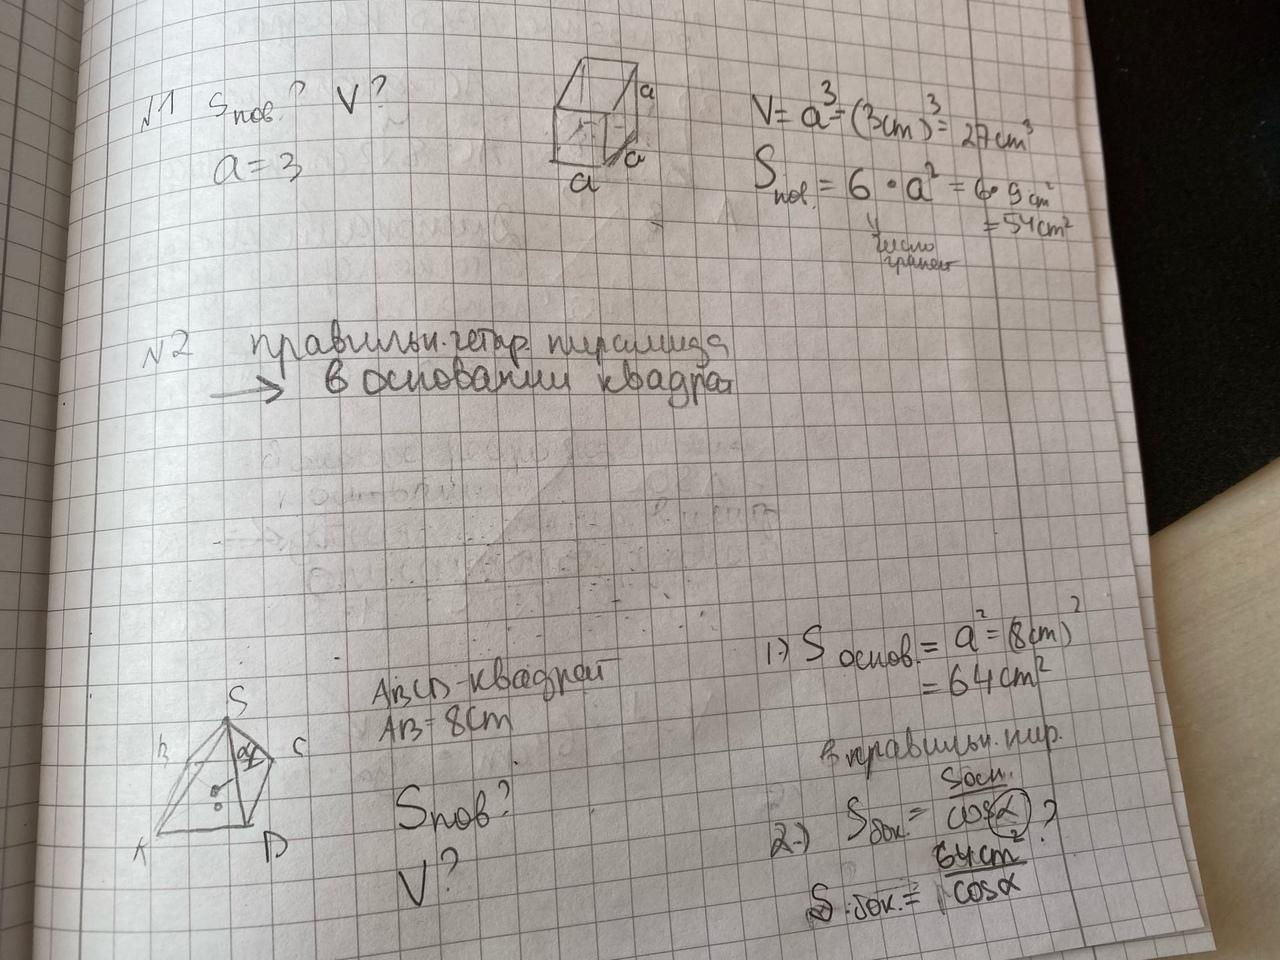 N1 Sпов.? V?
a = 3
a
a
a
V = a³ = (3cm)³ = 27cm³
Sпов. = 6 · a² = 6 · 9cm²
= 54cm²
число
граней
N2 правильн. четыр. пирамида
→ в основании квадрат
1.) S основ. = a² = (8cm)²
= 64cm²
ABCD - квадрат
AB = 8cm
Sпов?
V?
S
B
C
A
D
в правильн. пир.
2.) Sбок. = Sосн. / cosα ?
S.бок. = 64cm² / cosα